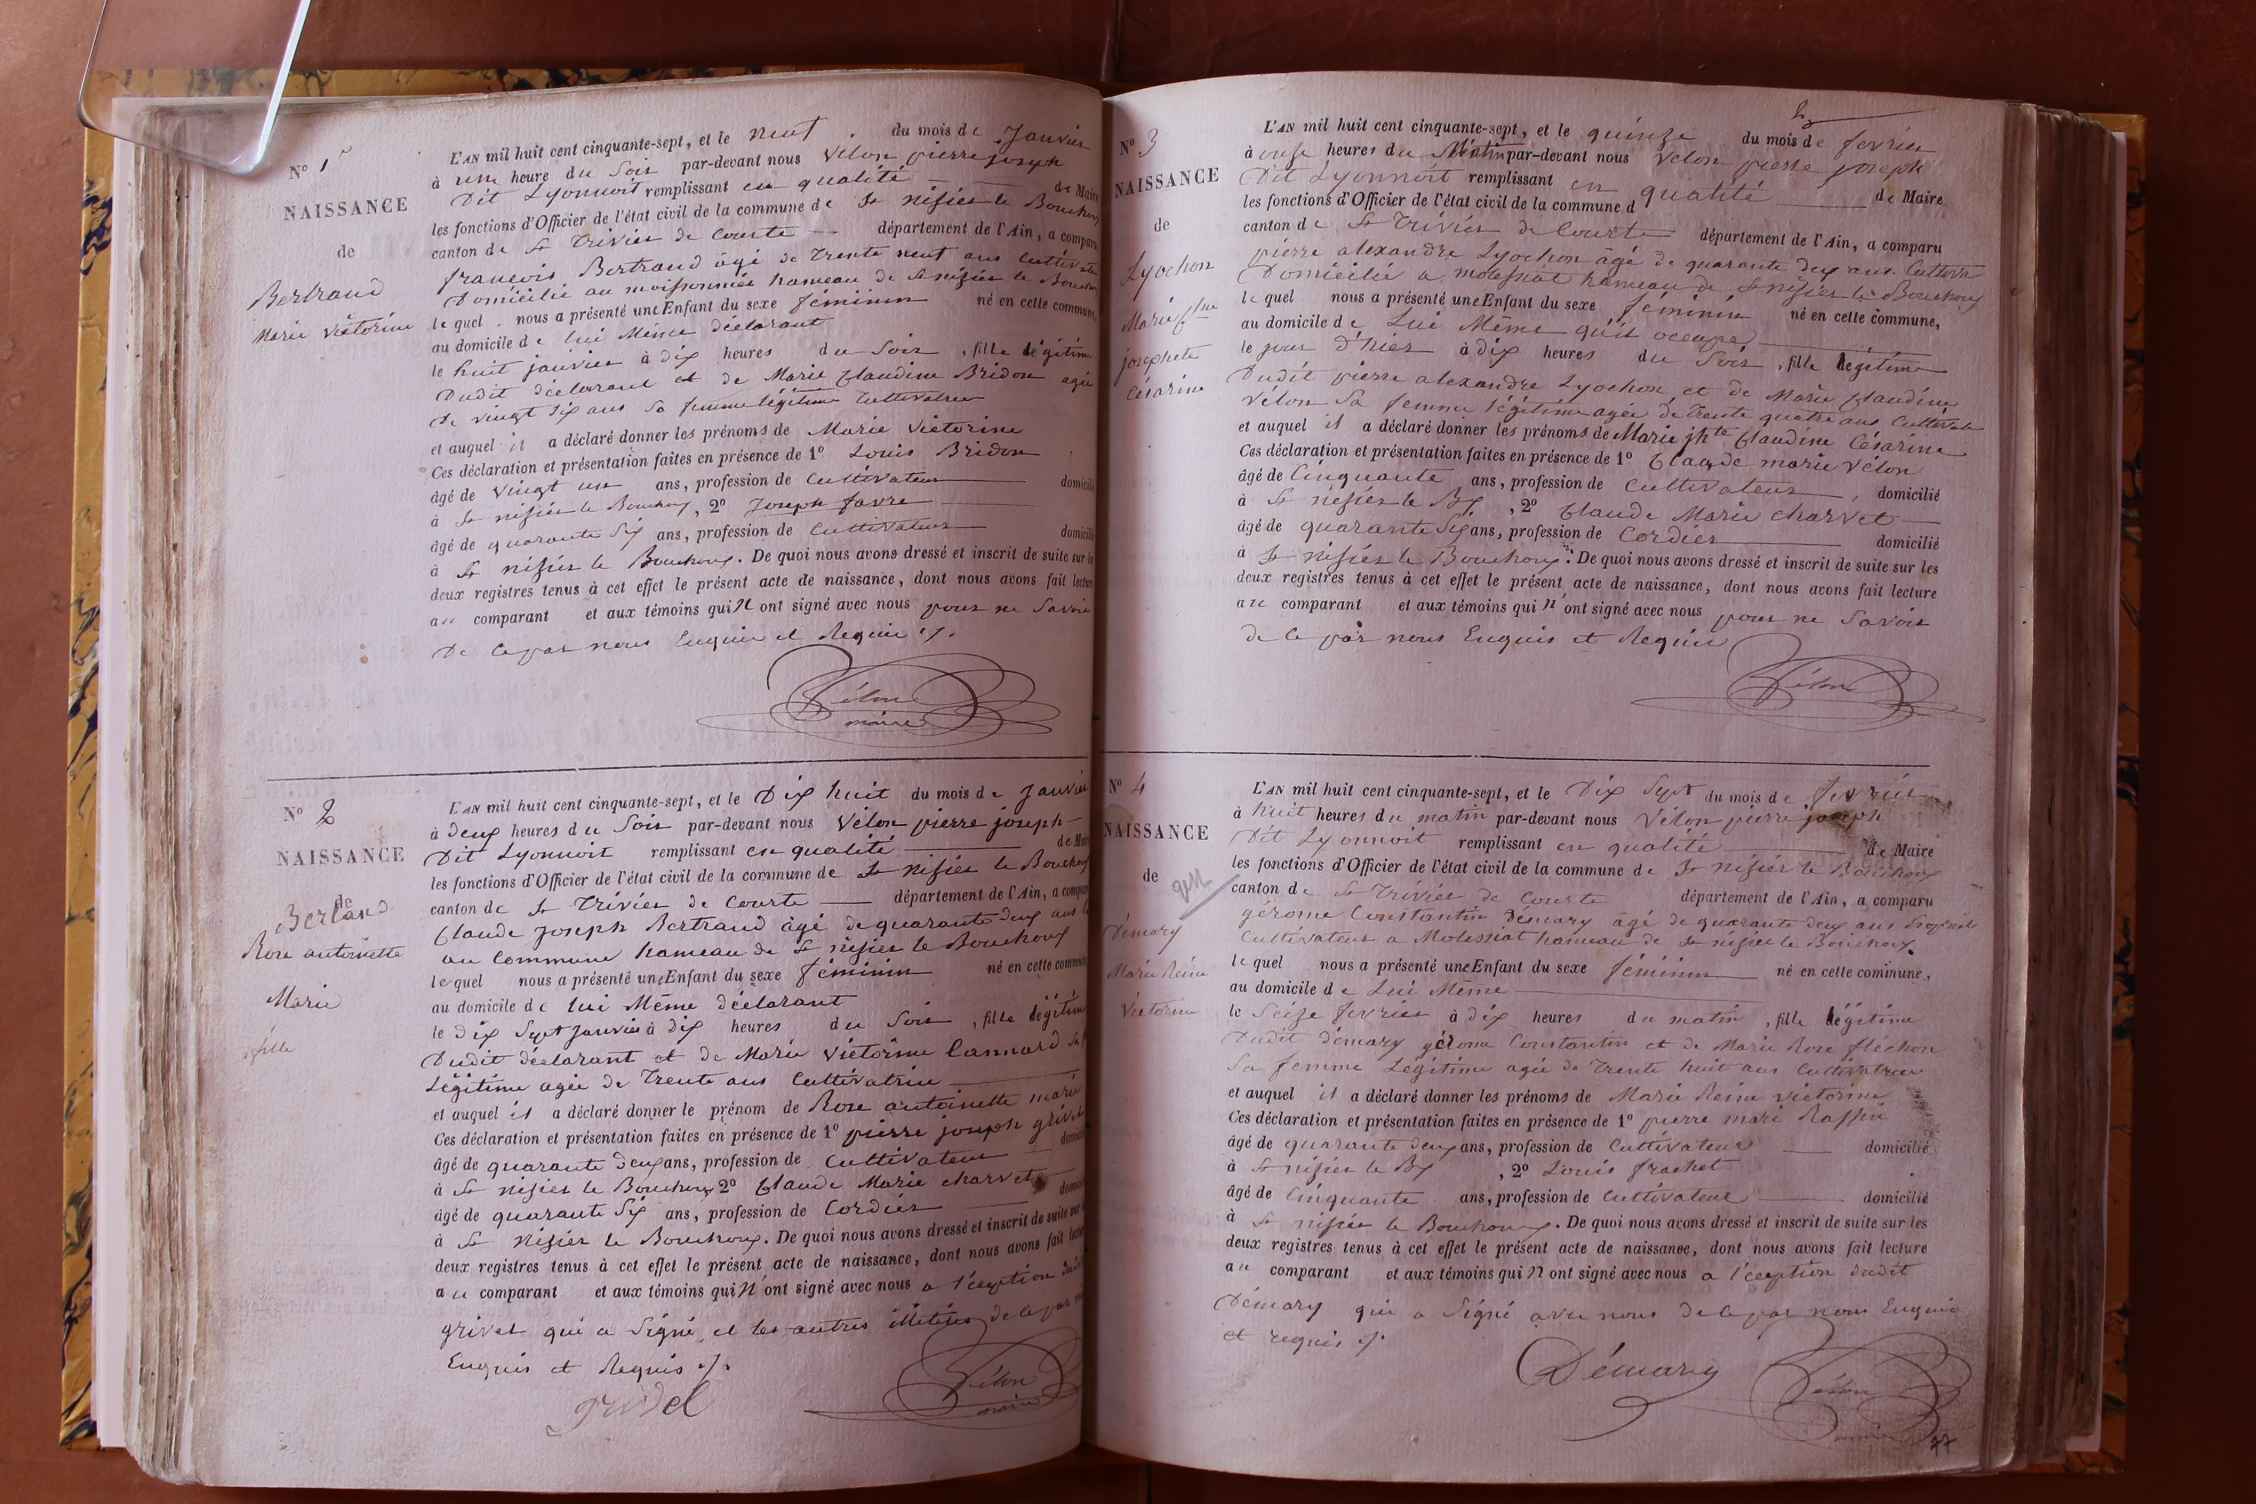 N° 1er
NAISSANCE
de
Bertrand
Marie Victorine
L'AN mil huit cent cinquante-sept, et le neuf du mois de Janvier
à une heure du Soir par-devant nous Vélon pierre joseph
Dit Lyonnoit remplissant en qualité de Maire
les fonctions d'Officier de l'état civil de la commune de St nisier le Bouchoux
canton de St Trivier de Courte département de l'Ain, a comparu
francois Bertrand âgé de trente neuf ans Cultivate
Domicilié au moissonnier hameau de St nisier le Bouchoux
lequel nous a présenté une Enfant du sexe féminin né en cette commune,
au domicile de lui Même déclarant
le huit janvier à dix heures du Soir, fille légitime
Dudit déclarant et de Marie Claudine Bridon agée
de vingt six ans Sa femme légitime Cultivatrice
et auquel il a déclaré donner les prénoms de Marie Victorine
Ces déclaration et présentation faites en présence de 1° Louis Bridon
âgé de vingt un ans, profession de Cultivateur domicilié
à St nisier le Bouchoux, 2° Joseph favre
âgé de quarante Six ans, profession de Cultivateur domicilié
à St nisier le Bouchoux. De quoi nous avons dressé et inscrit de suite sur les
deux registres tenus à cet effet le présent acte de naissance, dont nous avons fait lecture
au comparant et aux témoins qui N'ont signé avec nous pour ne Savoir
De ce par nous Enquis et Requis ./.
Vélon
maire
N° 2
NAISSANCE
de
Bertrand
Rose antoinette
Marie
fille
L'AN mil huit cent cinquante-sept, et le Dix huit du mois de Janvier
à deux heures du Soir par-devant nous Vélon pierre joseph
Dit Lyonnoit remplissant en qualité de Maire
les fonctions d'Officier de l'état civil de la commune de St nisier le Bouchoux
canton de St Trivier de Courte département de l'Ain, a comparu
Claude Joseph Bertrand âgé de quarante deux ans
au Commune hameau de St nisier le Bouchoux
lequel nous a présenté une Enfant du sexe féminin né en cette commune
au domicile de lui Même déclarant
le dix Sept Janvier à dix heures du Soir, fille légitime
Dudit déclarant et de Marie Victorine Cannard Sa
Légitime agée de Trente ans Cultivatrice
et auquel il a déclaré donner le prénom de Rose antoinette marie
Ces déclaration et présentation faites en présence de 1° pierre joseph grivet
âgé de quarante deux ans, profession de Cultivateur domicilié
à St nisier le Bouchoux 2° Claude Marie charvet
âgé de quarante Six ans, profession de Cordier domicilié
à St Nisier le Bouchoux. De quoi nous avons dressé et inscrit de suite sur
deux registres tenus à cet effet le présent acte de naissance, dont nous avons fait lecture
au comparant et aux témoins qui N'ont signé avec nous a l'éception dudit
grivet qui a Signé et les autres illétérés de ce par
Enquis et Requis ./.
grivel
Vélon
maire
2
N° 3
NAISSANCE
de
Lyochon
Marie Cdne
josephete
Césarine
L'AN mil huit cent cinquante-sept, et le quinze du mois de fevrier
à onze heures du Matin par-devant nous Vélon pierre joseph
Dit Lyonnoit remplissant en qualité de Maire
les fonctions d'Officier de l'état civil de la commune d
canton de St Trivier de Courte département de l'Ain, a comparu
pierre alexandre Lyochon âgé de quarante deux ans Cultivr
Domicilié a molessiat hameau de St nisier le Bouchoux
lequel nous a présenté une Enfant du sexe féminin né en cette commune,
au domicile de Lui Même qu'il occupe
le jour d'hier à dix heures du Soir, fille légitime
Dudit pierre alexandre Lyochon et de Marie Claudine
Vélon Sa femme légitime agée de Trente quatre ans Cultivat
et auquel il a déclaré donner les prénoms de Marie jhte Claudine Césarine
Ces déclaration et présentation faites en présence de 1° Claude marie Vélon
âgé de Cinquante ans, profession de Cultivateur, domicilié
à St nisier le Bx, 2° Claude Marie charvet
âgé de quarante Six ans, profession de Cordier domicilié
à St nisier le Bouchoux. De quoi nous avons dressé et inscrit de suite sur les
deux registres tenus à cet effet le présent acte de naissance, dont nous avons fait lecture
au comparant et aux témoins qui N'ont signé avec nous pour ne Savoir
de Ce par nous Enquis et Requis
Vélon
N° 4
NAISSANCE
de
Démary
Marie Reine
Victorine
L'AN mil huit cent cinquante-sept, et le Dix Sept du mois de fevrier
à huit heures du matin par-devant nous Vélon pierre joseph
Dit Lyonnoit remplissant en qualité de Maire
les fonctions d'Officier de l'état civil de la commune de St nisier le Bouchoux
canton de St Trivier de Courte département de l'Ain, a comparu
gérome Constantin Démary âgé de quarante deux ans
Cultivateur a Molessiat hameau de St nisier le Bouchoux
lequel nous a présenté une Enfant du sexe féminin né en cette commune,
au domicile de Lui Même
le Seize fevrier à dix heures du matin, fille légitime
Dudit démary gérome Constantin et de Marie Rose fléchon
Sa femme Légitime agée de Trente huit ans Cultivatrice
et auquel il a déclaré donner les prénoms de Marie Reine victorine
Ces déclaration et présentation faites en présence de 1° pierre marie Raffin
âgé de quarante deux ans, profession de Cultivateur domicilié
à St nisier le Bx, 2° Louis frachet
âgé de Cinquante ans, profession de Cultivateur domicilié
à St nisier le Bouchoux. De quoi nous avons dressé et inscrit de suite sur les
deux registres tenus à cet effet le présent acte de naissance, dont nous avons fait lecture
au comparant et aux témoins qui N'ont signé avec nous a l'éception dudit
Démary qui a Signé avec nous de ce par nous Enquis
et requis ./.
Démary
Vélon
maire